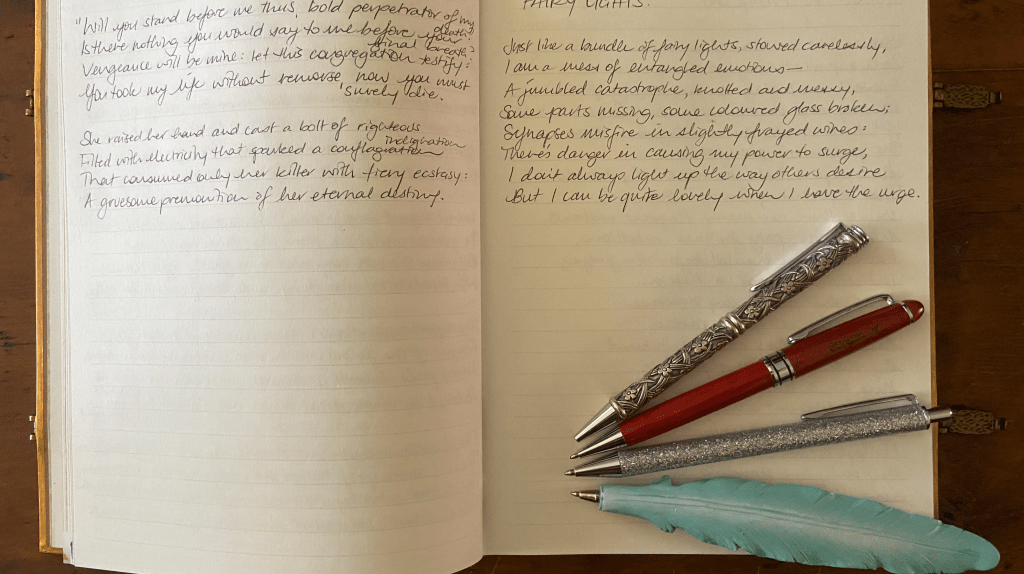 "Will you stand before me thus, bold perpetrator of my death?
Is there nothing you would say to me before your final breath?
Vengeance will be mine: let this congregation testify:
You took my life without remorse, now you must
surely die.
She raised her hand and cast a bolt of righteous indignation
Filled with electricity that sparked a conflagration
That consumed only her killer with fiery ecstasy:
A gruesome premonition of her eternal destiny.
FAIRY LIGHTS.
Just like a bundle of fairy lights, stowed carelessly,
I am a mess of entangled emotions—
A jumbled catastrophe, knotted and messy,
Some parts missing, some coloured glass broken;
Synapses misfire in slightly frayed wires:
There's danger in causing my power to surge,
I don't always light up the way others desire
But I can be quite lovely when I have the urge.